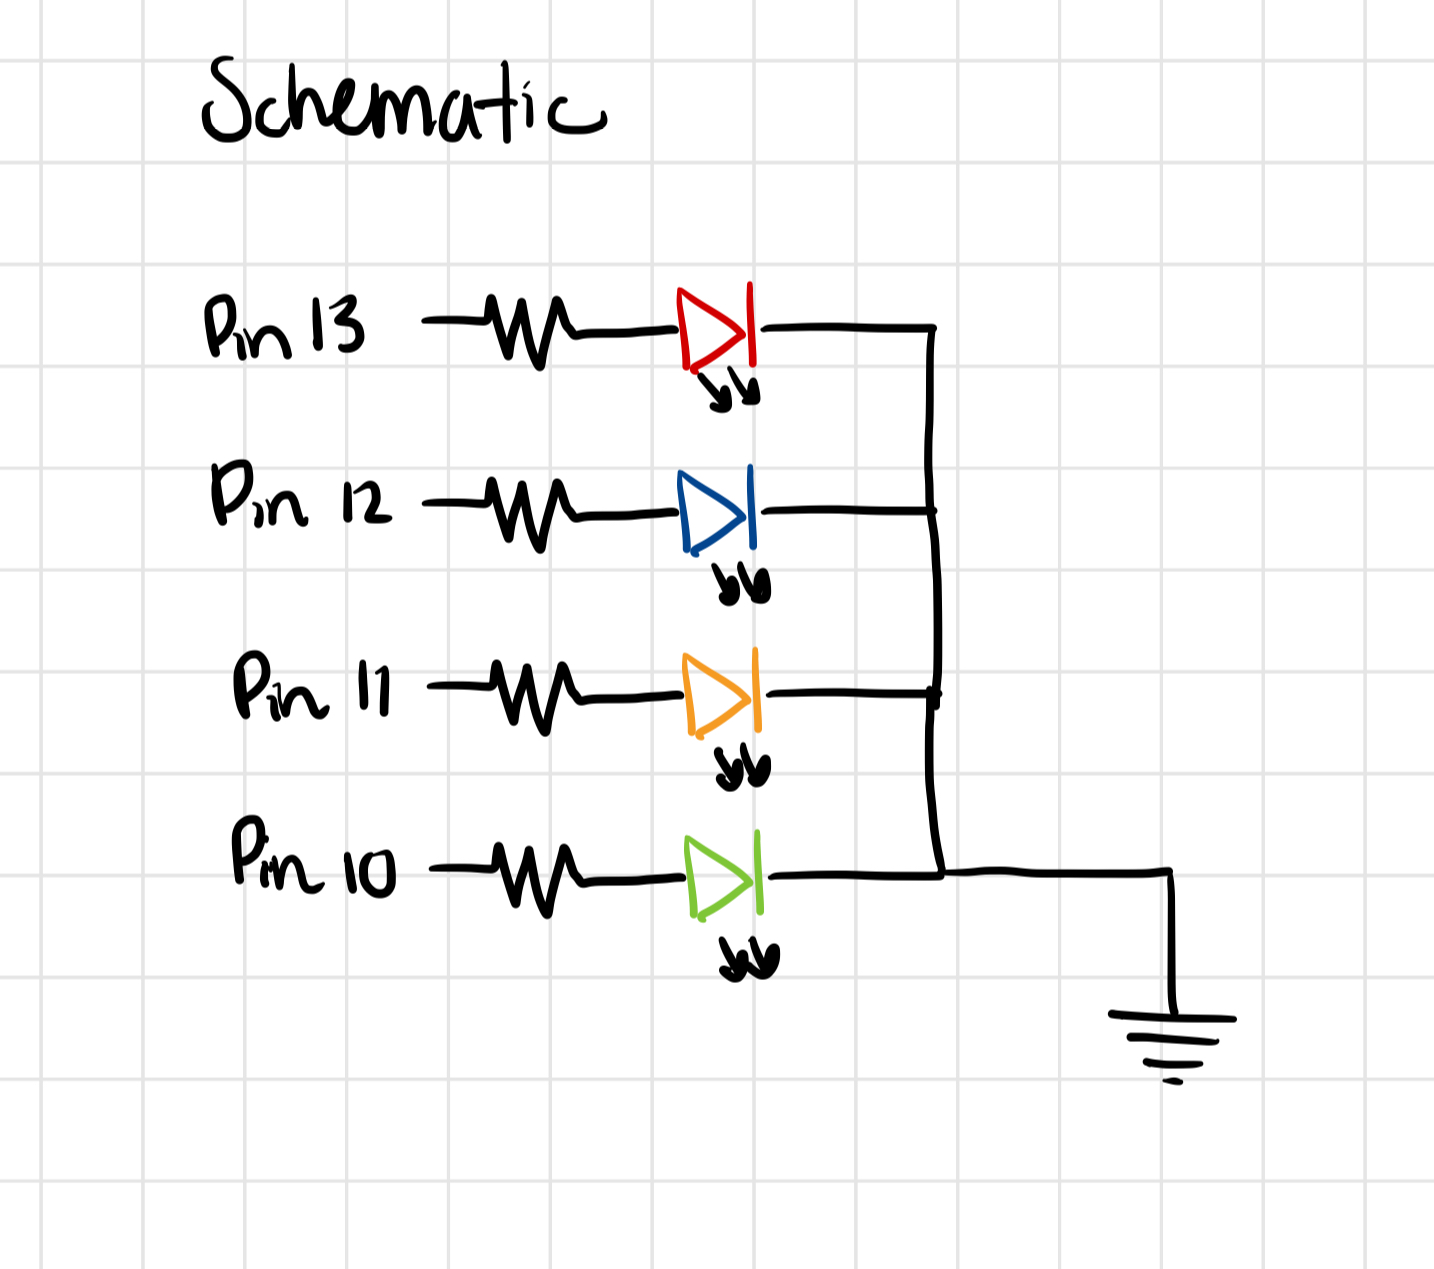 Schematic
Pin 13
Pin 12
Pin 11
Pin 10